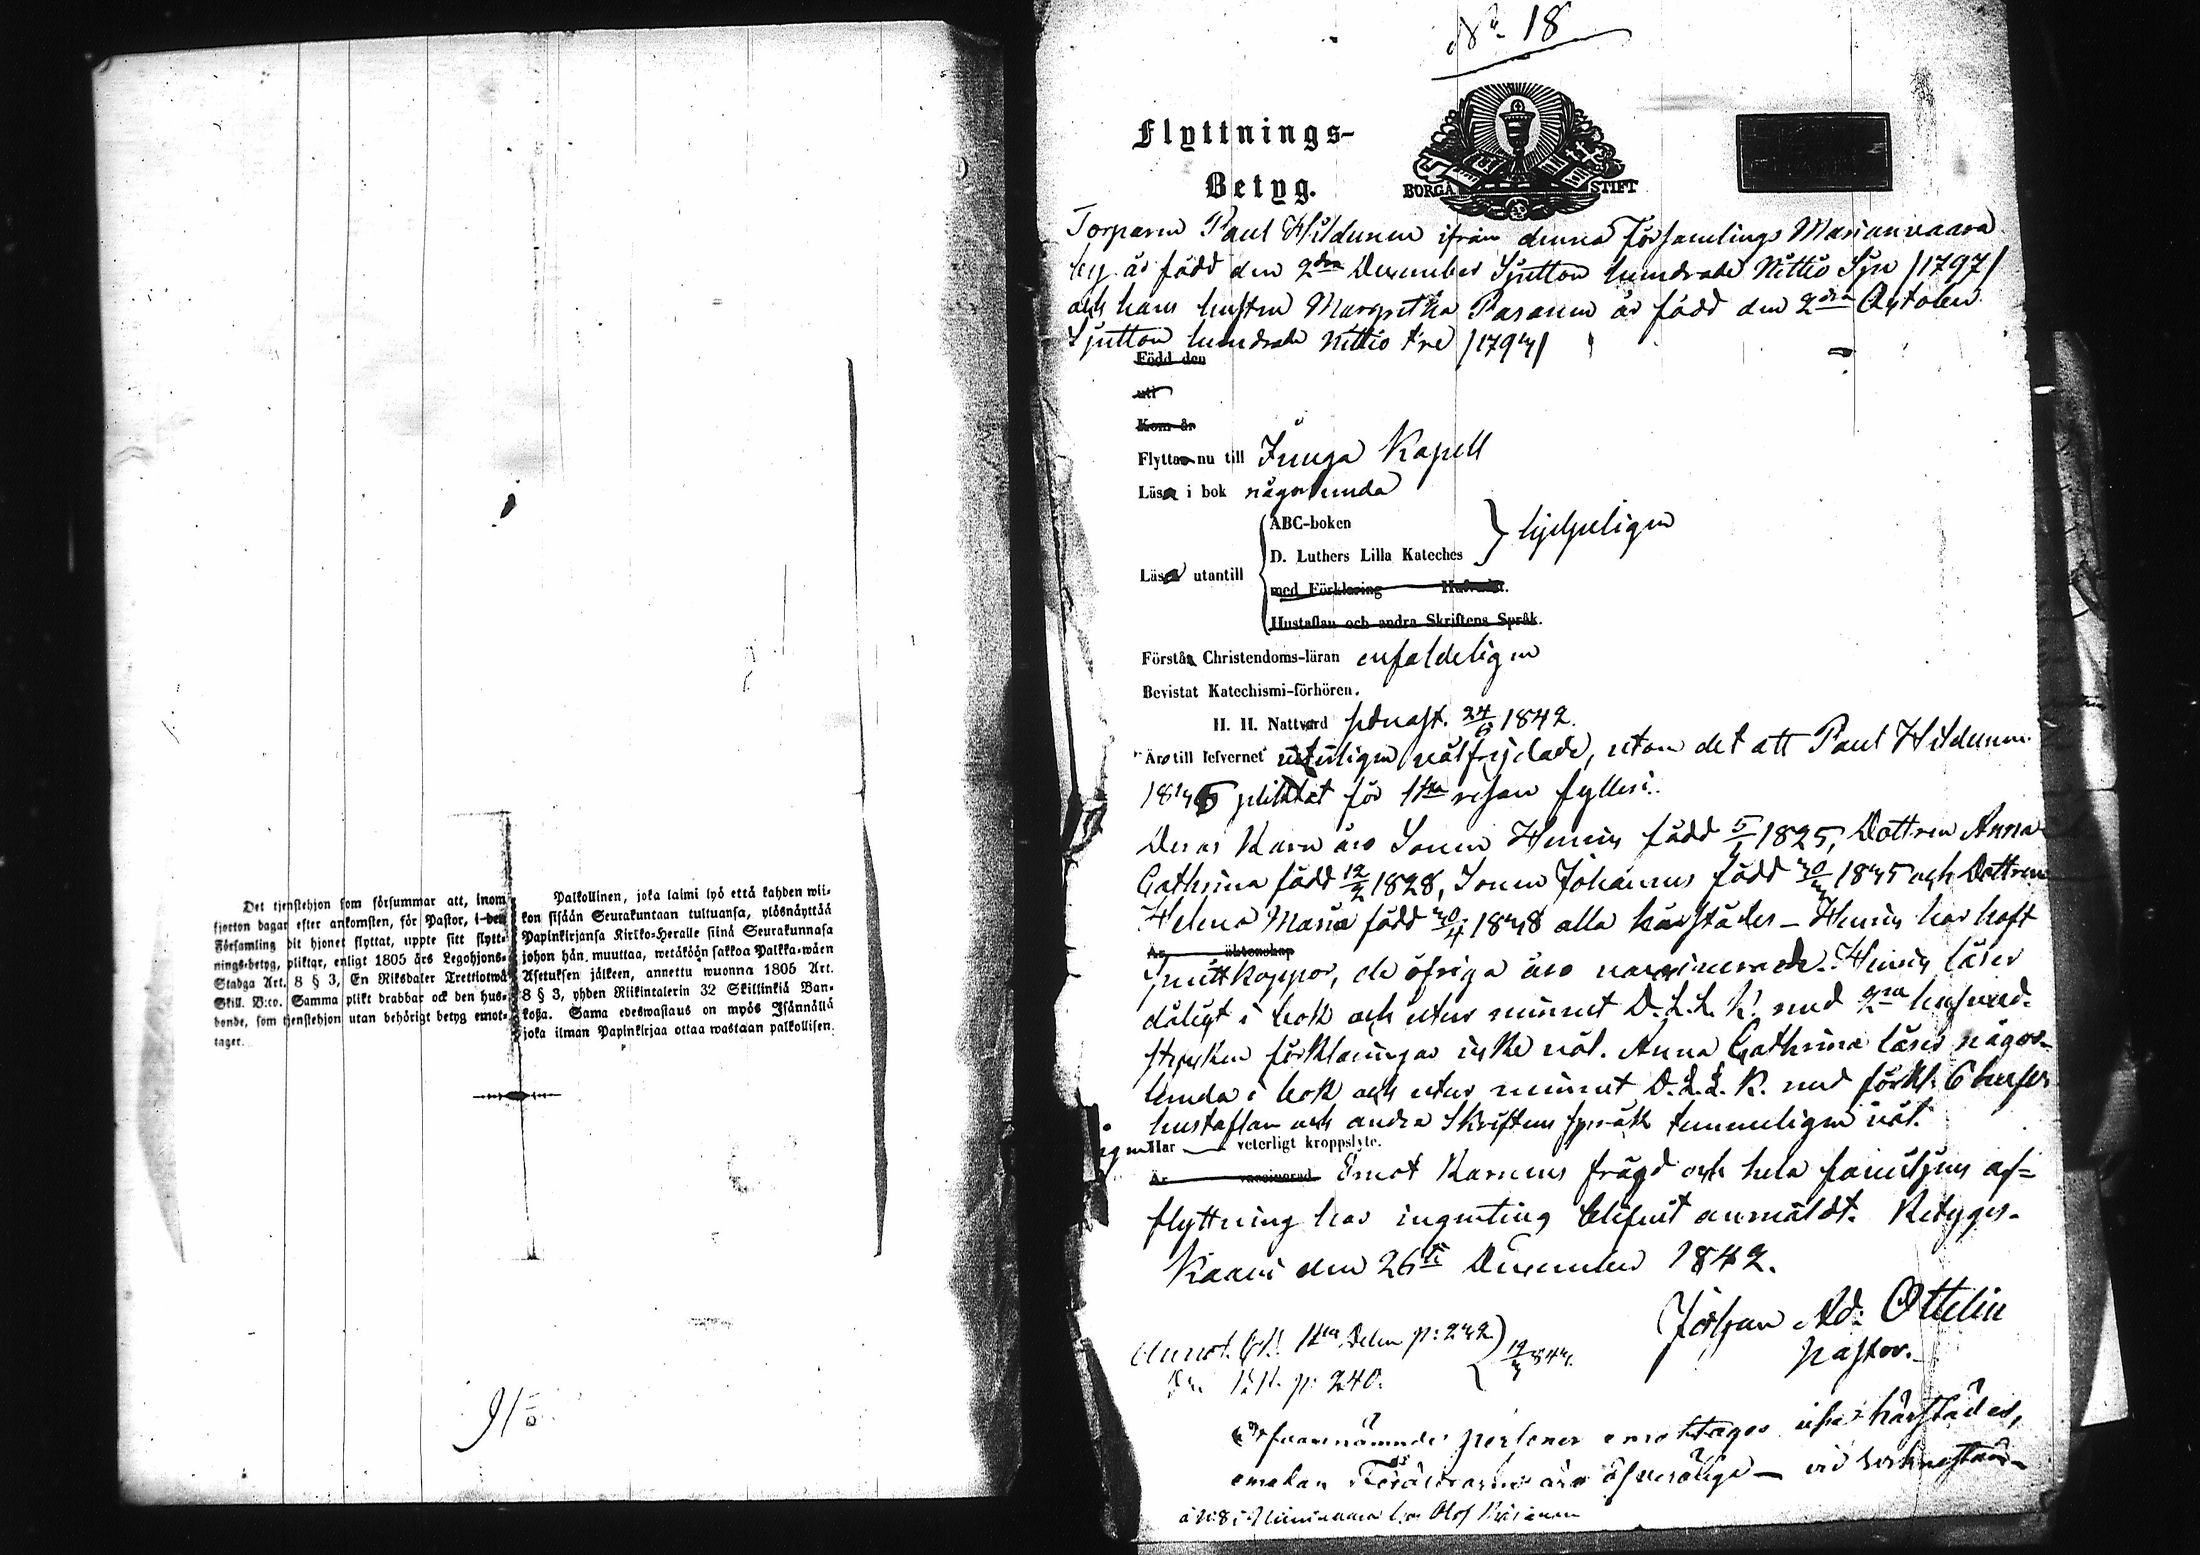 Det tjenstehjon som försummar att, inom
fjorton dagar efter ankomsten, för Pastor, i den
Församling dit hjonet flyttat, uppte sitt flytt-
nings-betyg, pliktar, enligt 1805 års Legohjons-
Stadga Art. 8 § 3, En Riksdaler Trettiotwå
Skill. B:co. Samma plikt drabbar ock den hus-
bonde, som tjenstehjon utan behörigt betyg emot-
tager.
Palkollinen, joka laimi lyö että kahden wii-
kon sisään Seurakuntaan tultuansa, ylösnäyttää
Papinkirjansa Kirkko-Heralle siinä Seurakunnasa
johon hän muuttaa, wetäköön sakkoa Palkka-wäen
Asetuksen jälkeen, annettu wuonna 1805 Art.
8 § 3, yhden Riikintalerin 32 Skillinkiä Ban-
koßa. Sama edeswastaus on myös Isännällä
joka ilman Papinkirjaa ottaa wastaan palkollisen.
N:o 18
Flyttnings-
Betyg.
BORGÅ STIFT
Torparen Paul Hildunen ifrån denna Församlings Marianvaara
by är född den 2dra December Sjutton hundrade Nittio Sju /1797/
och hans hustru Margretha Pasanen är född den 2dra October
Sjutton hundrade Nittio tre /1793/
Född den
uti
Kom år
Flytta nu till Juuga Kapell
Läsa i bok någorlunda
ABC-boken
D. Luthers Lilla Kateches } hjelpeligen
Läsa utantill
med Förklaring
Hustaflan och andra Skriftens Språk.
Förstå Christendoms-läran enfaldeligen
Bevistat Katechismi-förhören.
H. H. Nattvard senast. 24/6 1842.
Äro till lefvernet veterligen välfrejdade, utom det att Paul Hildunen
1836 pliktat för 1sta resan fylleri.
Deras Barn äro Sonen Henric född 5/1 1825, Dottren Anna
Cathrina född 12/2 1828, Sonen Johannes född 30/3 1835 och Dottren
Helena Maria född 30/4 1838 alla härstädes – Henric har haft
Är äktenskap
Smittkoppor, de öfriga äro vaccinerade. Henric läser
dåligt i bok och utur minnet D. L. L. K. med 2ne hufvud-
styckens förklaringar icke väl. Anna Cathrina läser någor-
lunda i bok och utur minnet D. L. L. K. med förkl.
hustaflan och andra Skriftens språk temmeligen väl.
Har veterligt kroppslyte.
Är vaccinerad. Emot Barnens frägd och hela familjens af-
flyttning har ingenting blifvit anmäldt. Betygas.
Kaavi den 26te December 1842.
Johan Ad. Ottelin
Pastor.
p: 232
p: 240.
personer emottages härstädes,
emedan Föräldrarne äro
Olof